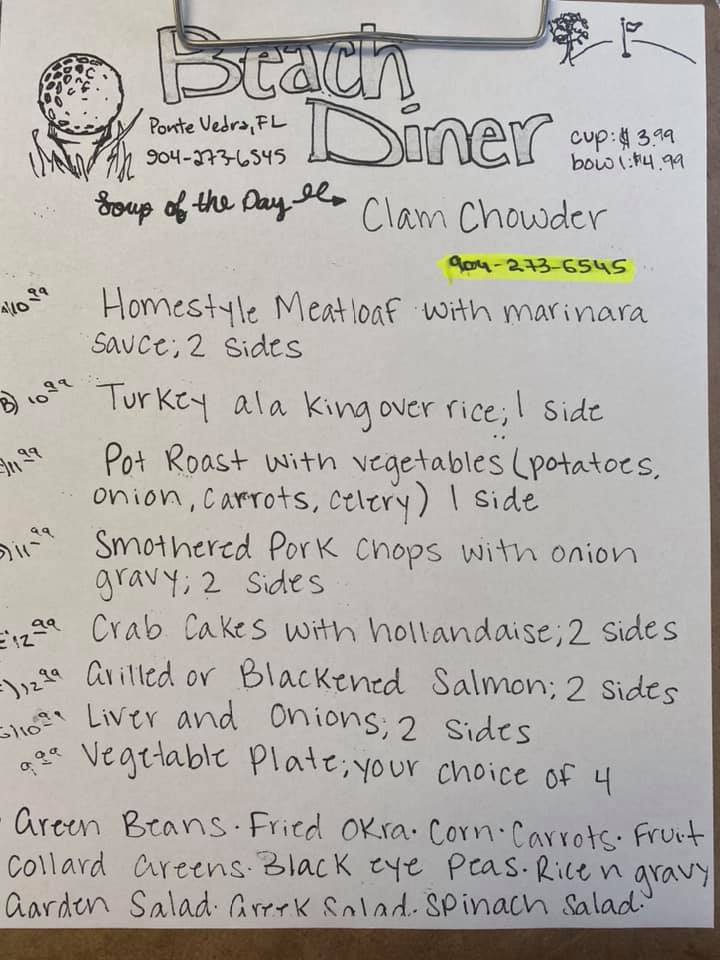 Beach
Diner
Ponte Vedra, FL
904-273-6545
cup: $3.99
bowl: $4.99
Soup of the Day
Clam Chowder
904-273-6545
10.99 Homestyle Meatloaf with marinara
sauce; 2 sides
B) 10.99 Turkey ala King over rice; 1 side
11.99 Pot Roast with vegetables (potatoes,
onion, carrots, celery) 1 side
11.99 Smothered Pork Chops with onion
gravy; 2 sides
E) 12.99 Crab Cakes with hollandaise; 2 sides
12.99 Grilled or Blackened Salmon; 2 sides
10.99 Liver and Onions; 2 sides
9.99 Vegetable Plate; your choice of 4
Green Beans · Fried Okra · Corn · Carrots · Fruit
Collard Greens · Black eye Peas · Rice n gravy
Garden Salad · Greek Salad · Spinach Salad ·